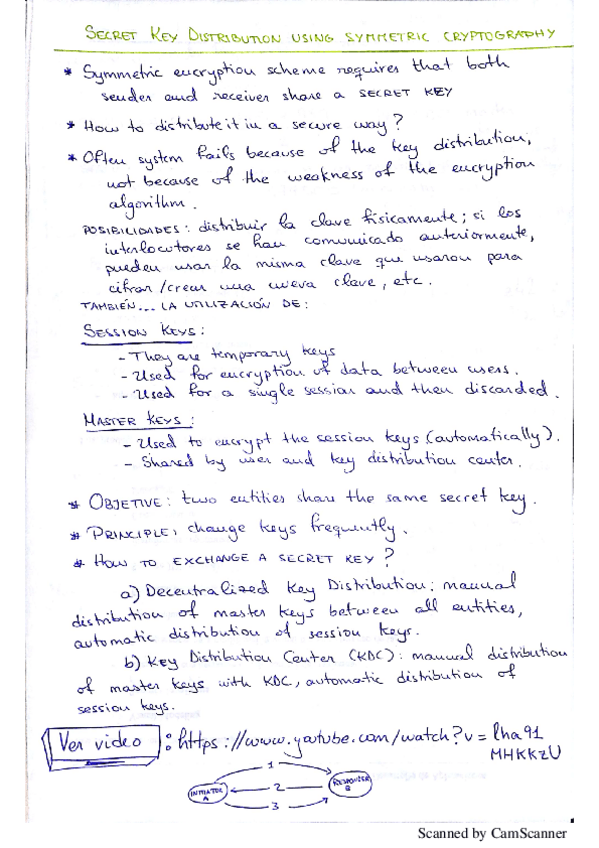 SECRET KEY DISTRIBUTION USING SYMMETRIC CRYPTOGRAPHY
* Symmetric encryption scheme requires that both
sender and receiver share a SECRET KEY
* How to distribute it in a secure way?
* Often system fails because of the key distribution,
not because of the weakness of the encryption
algorithm.
POSIBILIDADES: distribuir la clave físicamente; si los
interlocutores se han comunicado anteriormente,
pueden usar la misma clave que usaron para
cifrar/crear una nueva clave, etc.
TAMBIÉN... LA UTILIZACIÓN DE:
SESSION KEYS:
- They are temporary keys
- Used for encryption of data between users.
- Used for a single session and then discarded.
MASTER KEYS:
- Used to encrypt the session keys (automatically).
- Shared by user and key distribution center.
* OBJETIVE: two entities share the same secret key.
* PRINCIPLE: change keys frequently.
* HOW TO EXCHANGE A SECRET KEY?
a) Decentralized Key Distribution: manual
distribution of master keys between all entities,
automatic distribution of session keys.
b) Key Distribution Center (KDC): manual distribution
of master keys with KDC, automatic distribution of
session keys.
Ver video : https://www.youtube.com/watch?v=lha91
MHKKzU
1
INITIATOR
A
2
RESPONDER
B
3
Scanned by CamScanner